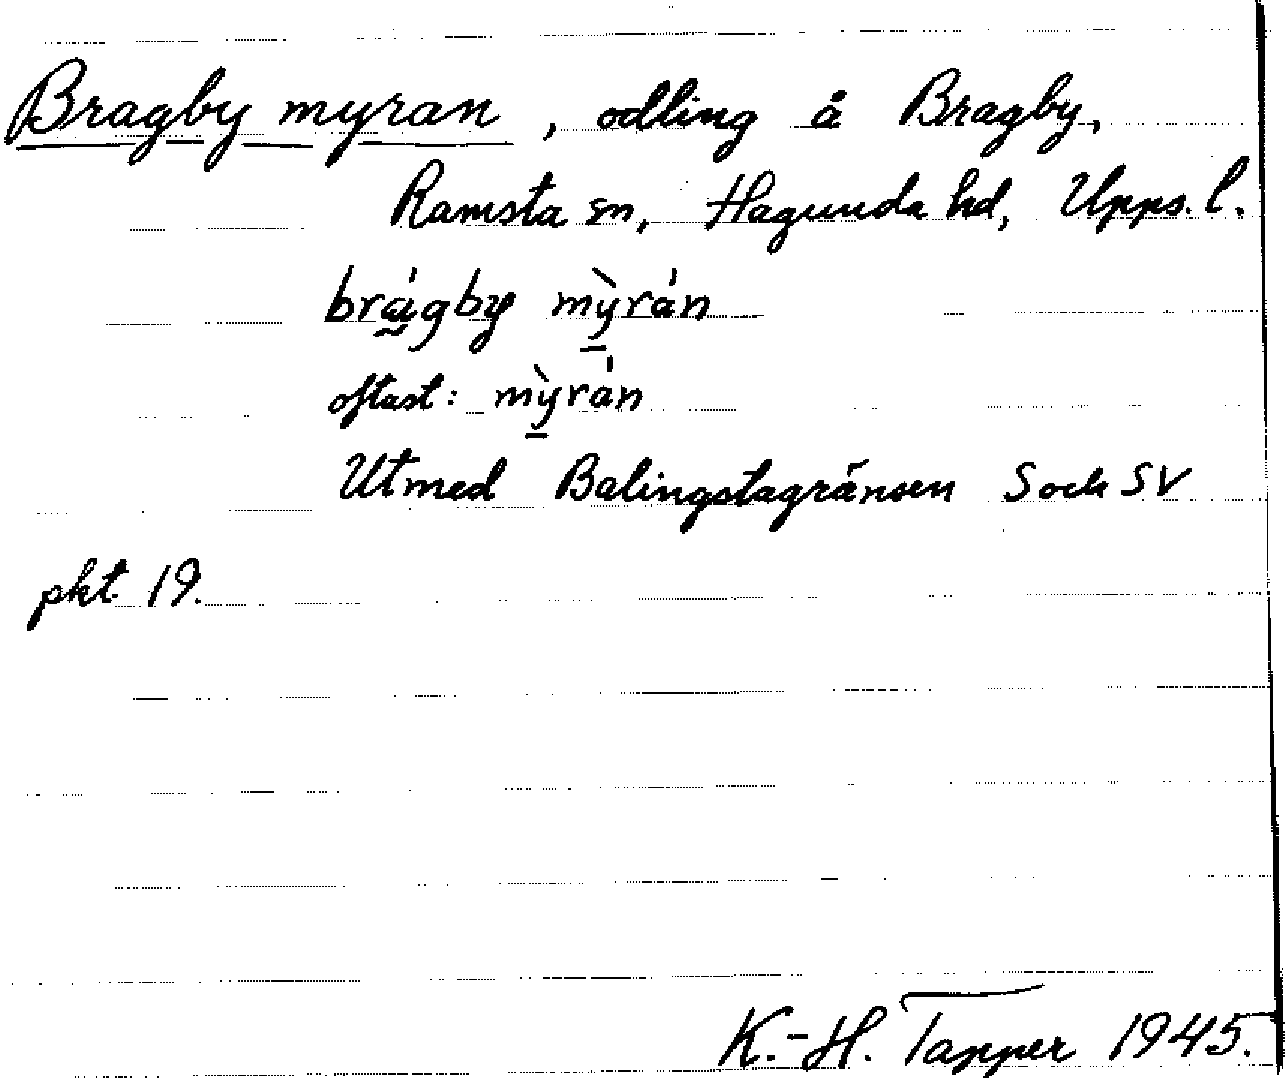 Bragby myran, odling å Bragby,
Ramsta sn, Hagunda hd, Upps. l.
brágby mỳrán
oftast: mỳrán
Utmed Balingstagränsen S och SV
pkt 19.
K.-H. Tapper 1945.